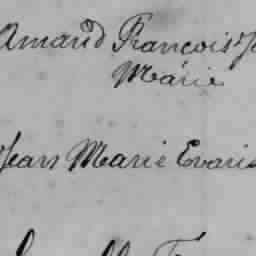 Amand François
Marie
Jean Marie Evaris